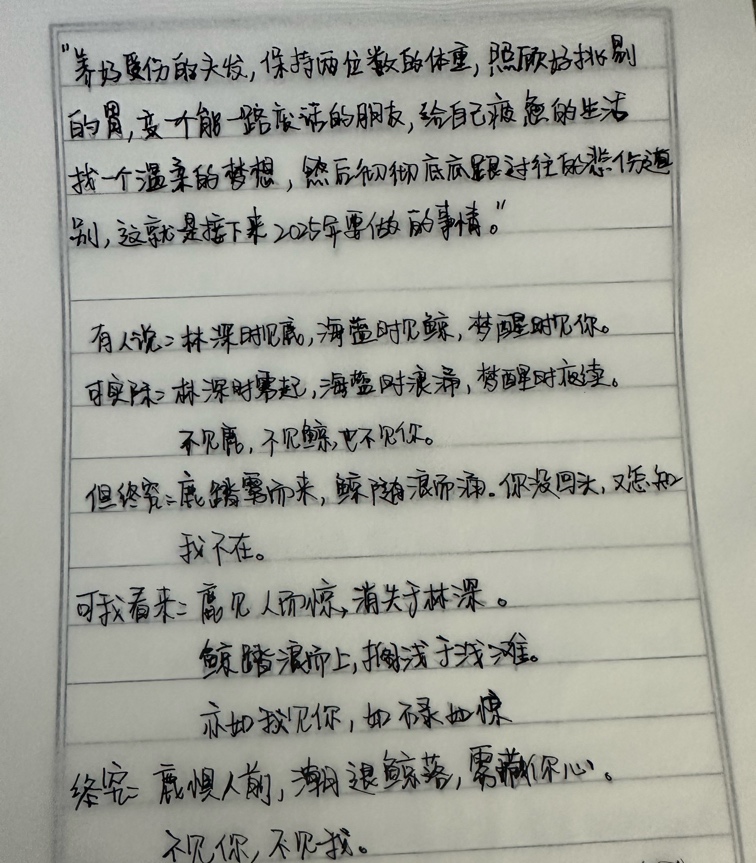 "养好受伤的头发，保持两位数的体重，照顾好挑剔
的胃，变一个能一路废话的朋友，给自己疲惫的生活
找一个温柔的梦想，然后彻彻底底跟过往的悲伤道
别，这就是接下来2025年要做的事情。"
有人说：林深时见鹿，海蓝时见鲸，梦醒时见你。
可实际：林深时雾起，海蓝时浪涌，梦醒时夜续。
不见鹿，不见鲸，也不见你。
但终究：鹿踏雾而来，鲸随浪而涌。你没回头，又怎知
我不在。
可我看来：鹿见人而惊，消失于林深。
鲸踏浪而上，搁浅于浅滩。
亦如我见你，如禄如惊
终究：鹿惧人前，潮退鲸落，雾藏你心。
不见你，不见我。